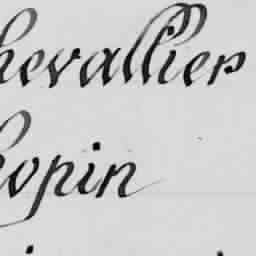 hevallier
hopin